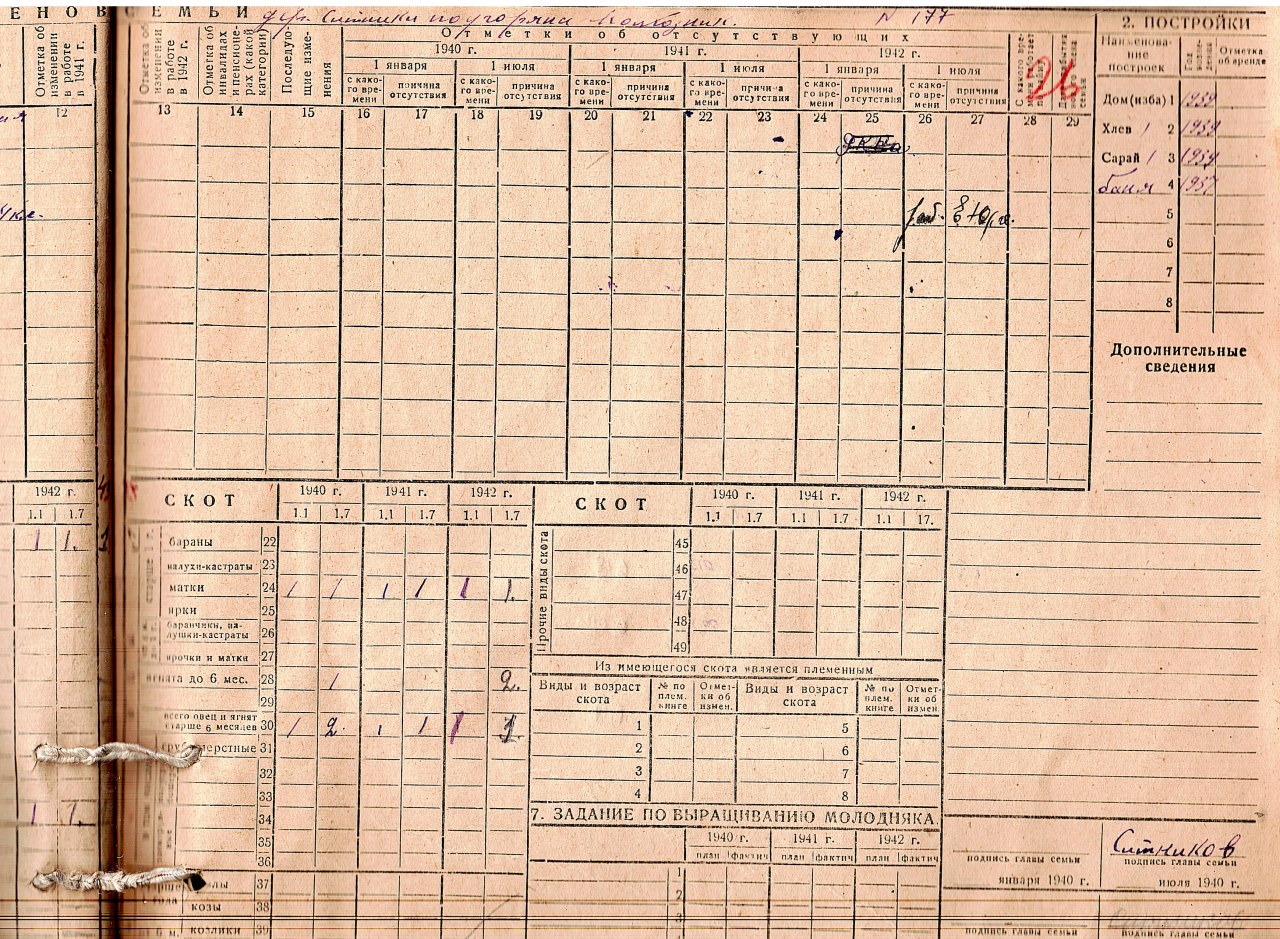 ЕНОВ СЕМЬИ
дер. Ситники N 177
Отметка об изменении в работе в 1941 г.
12
Отметка об изменении в работе в 1942 г.
Отметка об инвалидах и пенсионерах (какой категории)
Последующие изменения
Отметки об отсутствующих
1940 г. 1941 г. 1942 г.
1 января 1 июля 1 января 1 июля 1 января 1 июля
с какого времени причина отсутствия с какого времени причина отсутствия с какого времени причина отсутствия с какого времени причина отсутствия с какого времени причина отсутствия с какого времени причина отсутствия
26
13 14 15 16 17 18 19 20 21 22 23 24 25 26 27 28 29
РККА
раб.
2. ПОСТРОЙКИ
Наименование построек Отметка об аренде
Дом (изба) 1 1939
Хлев 1 2 1939
Сарай 1 3 1939
баня 4 1937
5
6
7
8
Дополнительные сведения
1942 г.
1.1 1.7
1 1.
1 1.
СКОТ 1940 г. 1941 г. 1942 г.
1.1 1.7 1.1 1.7 1.1 1.7
бараны 22
валухи-кастраты 23
матки 24 1 1 1 1 1 1.
ярки 25
баранчики, валушки-кастраты 26
ярочки и матки 27
ягнята до 6 мес. 28 1 2.
29
всего овец и ягнят старше 6 месяцев 30 1 2. 1 1 1 1
31
32
33
34
35
36
37
козы 38
козлики 39
СКОТ 1940 г. 1941 г. 1942 г.
1.1 1.7 1.1 1.7 1.1 17.
Прочие виды скота
45
46
47
48
49
Из имеющегося скота является племенным
Виды и возраст скота № по плем. книге Отметки об измен. Виды и возраст скота № по плем. книге Отметки об измен.
1 5
2 6
3 7
4 8
7. ЗАДАНИЕ ПО ВЫРАЩИВАНИЮ МОЛОДНЯКА.
1940 г. 1941 г. 1942 г.
план фактич план фактич план фактич
1
2
3
Ситников
подпись главы семьи подпись главы семьи
января 1940 г. июля 1940 г.
подпись главы семьи подпись главы семьи